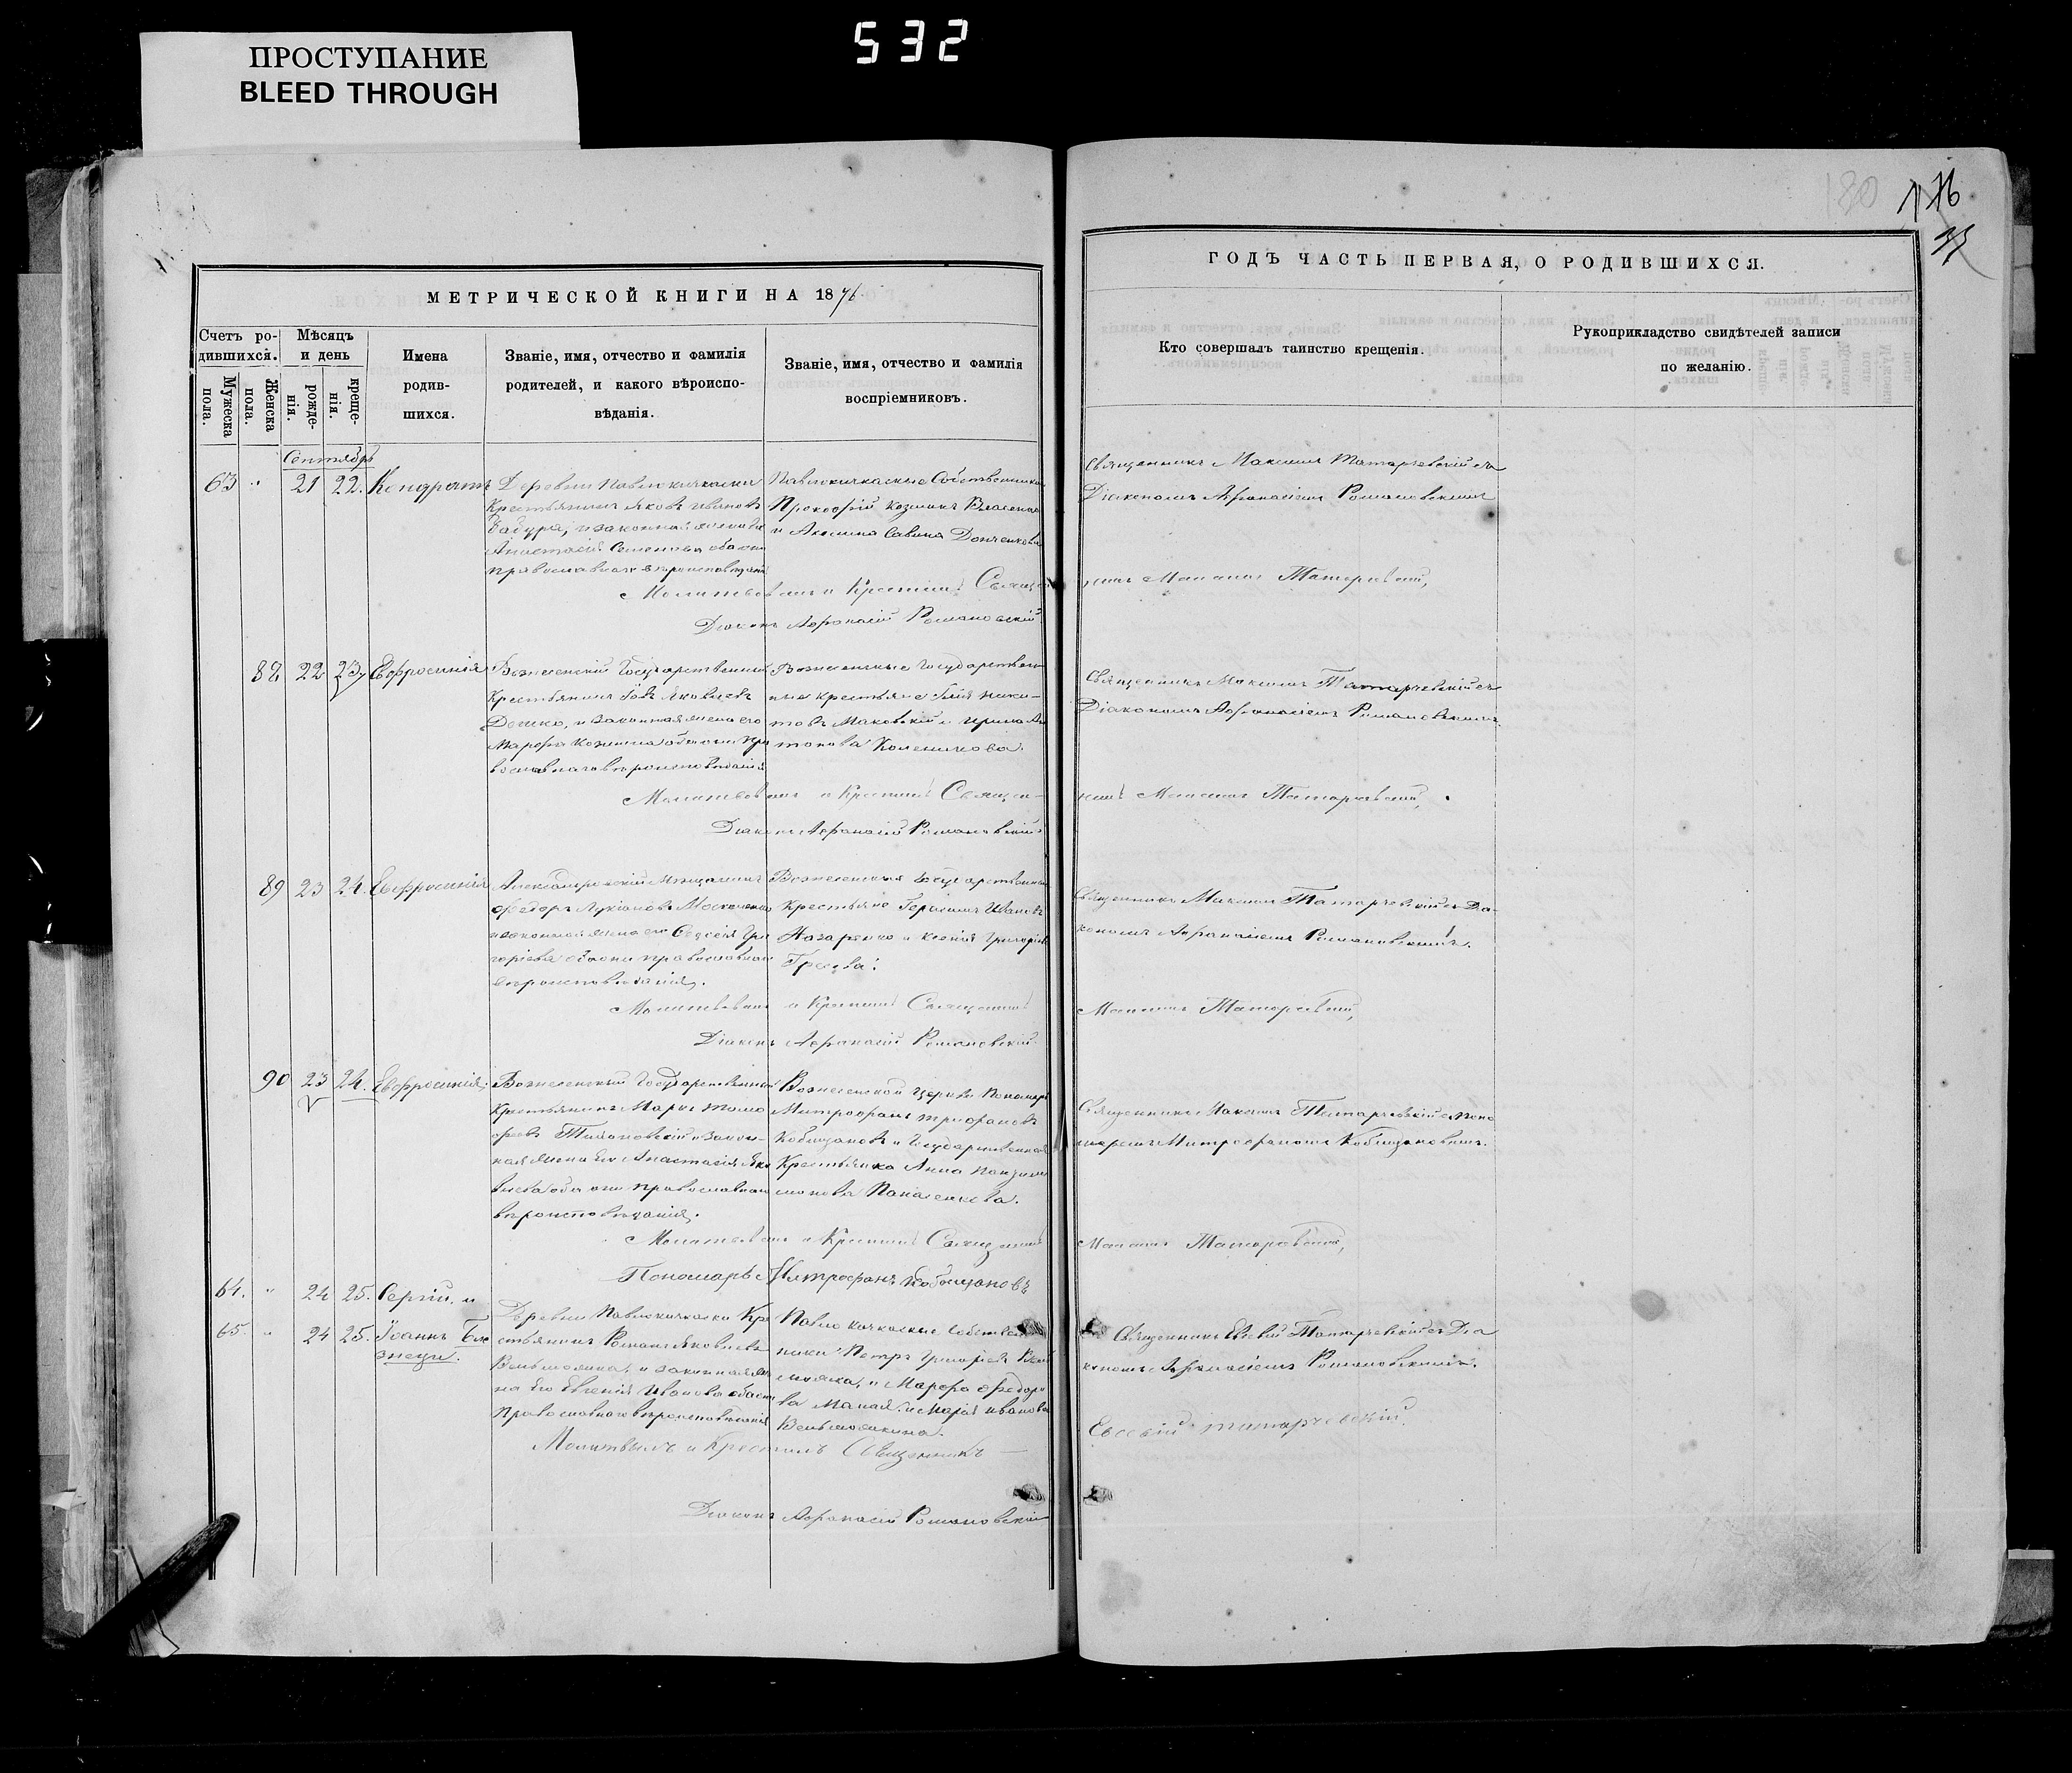 532
ПРОСТУПАНИЕ
BLEED THROUGH
180
176
МЕТРИЧЕСКОЙ КНИГИ НА 1876
Счетъ родившихся.
Мужеска пола.
Женска пола.
Мѣсяцъ и день
рожденія.
крещенія.
Имена
родив-
шихся.
Званіе, имя, отчество и фамилія
родителей, и какого вѣроиспо-
вѣданія.
Званіе, имя, отчество и фамилія
воспріемниковъ.
ГОДЪ ЧАСТЬ ПЕРВАЯ, О РОДИВШИХСЯ.
Кто совершалъ таинство крещенія.
Рукоприкладство свидѣтелей записи
по желанію.
Сентябрь
63 " 21 22. Кондратъ
Деревни Павлокичкаски
Крестьянинъ Яковъ Ивановъ
законная жена его
Анастасія Семенова оба они
православнаго вѣроисповѣданія
Павлокичкаские Собственники
Прокофій Козминъ Власенко
и Акилина Савина Донченкова
Священникъ Максимъ Татарчевскій съ
Діакономъ Афанасіемъ Романовскимъ
Молитвовалъ и Крестилъ Священникъ Максимъ Татарчевскій,
Діаконъ Афанасій Романовскій
88 22 23 Евфросинія
Вознесенскій Государственный
Крестьянинъ Іовъ Яковлевъ
Дошко, и законная жена его
Марфа Козмина оба они пра
вославнаго вѣроисповѣданія
Вознесенские Государствен-
ные крестьяне Илія Ники-
товъ Маковскій и Ирина Ан
тонова Коленичова.
Священникъ Максимъ Татарчевскій съ
Діакономъ Афанасіемъ Романовскимъ.
Молитвовалъ и Крестилъ Священ-
никъ Максимъ Татарчевскій,
Діаконъ Афанасій Романовскій
89 23 24. Евфросинія
Александровскій Мѣщанинъ
Федоръ Лукіановъ Москаленко
и законная жена его Евдокія Гри
горіева оба они православнаго
вѣроисповѣданія.
Вознесенския Государственные
Крестьяне Герасимъ Ивановъ
Назаренко и Ксенія Григоріева
Священникъ Максимъ Татарчевскій съ Діа-
кономъ Афанасіемъ Романовскимъ.
Молитвовалъ и Крестилъ Священникъ
Максимъ Татарчевскій,
Діаконъ Афанасій Романовскій
90 23 24. Евфросинія
Вознесенскій Государственный
Крестьянинъ Маркъ Тимо
феевъ и закон-
ная жена его Анастасія Яко
влева оба они православнаго
вѣроисповѣданія.
Вознесенской Церкви Пономарь
Митрофанъ Трифановъ
Кобищановъ и Государственная
Крестьянка Анна Панзили
монова Панасенкова.
Священникъ Максимъ Татарчевскій съ Поно
маремъ Митрофаномъ Кобищановымъ.
Молитвовалъ и Крестилъ Священникъ
Максимъ Татарчевскій,
Пономарь Митрофанъ Кобищановъ
64. " 24 25. Сергій. и
65. " 24 25. Іоаннъ Бли
знецы.
Деревни Павлокичкаски Кре
стьянинъ Романъ Яковлевъ
Вельможка, и законная же
на Его Евгенія Иванова оба они
Православнаго вѣроисповѣданія
Павлокичкаские Собствен
ники Петръ Григорьевъ Вель
можка, и Марфа Федоро
ва Малая. и Марія Иванова
Вельможкина.
Священникъ Евсевій Татарчевскій съ Діа
кономъ Афанасіемъ Романовскимъ.
Молитвылъ и Крестилъ Священникъ —
Евсевій Татарчевскій.
Діаконъ Афанасій Романовскій